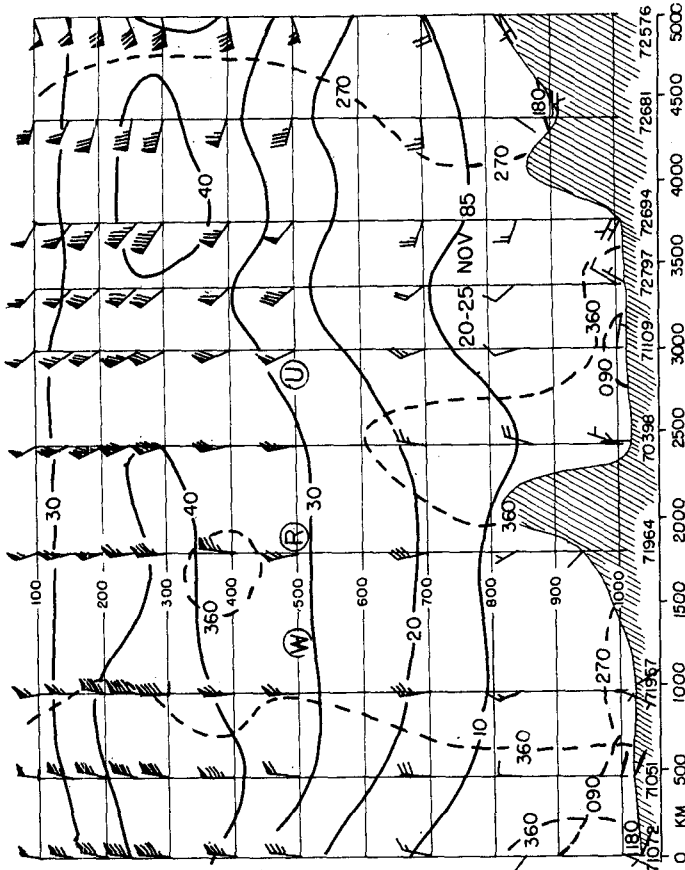 100
200
300
400
500
600
700
800
900
1000
30
40
40
30
20
10
W
R
U
270
270
180
360
360
360
360
360
090
090
270
180
20-25 NOV 85
71072
71051
71957
71964
70398
71109
72797
72694
72681
72576
KM
0
500
1000
1500
2000
2500
3000
3500
4000
4500
5000